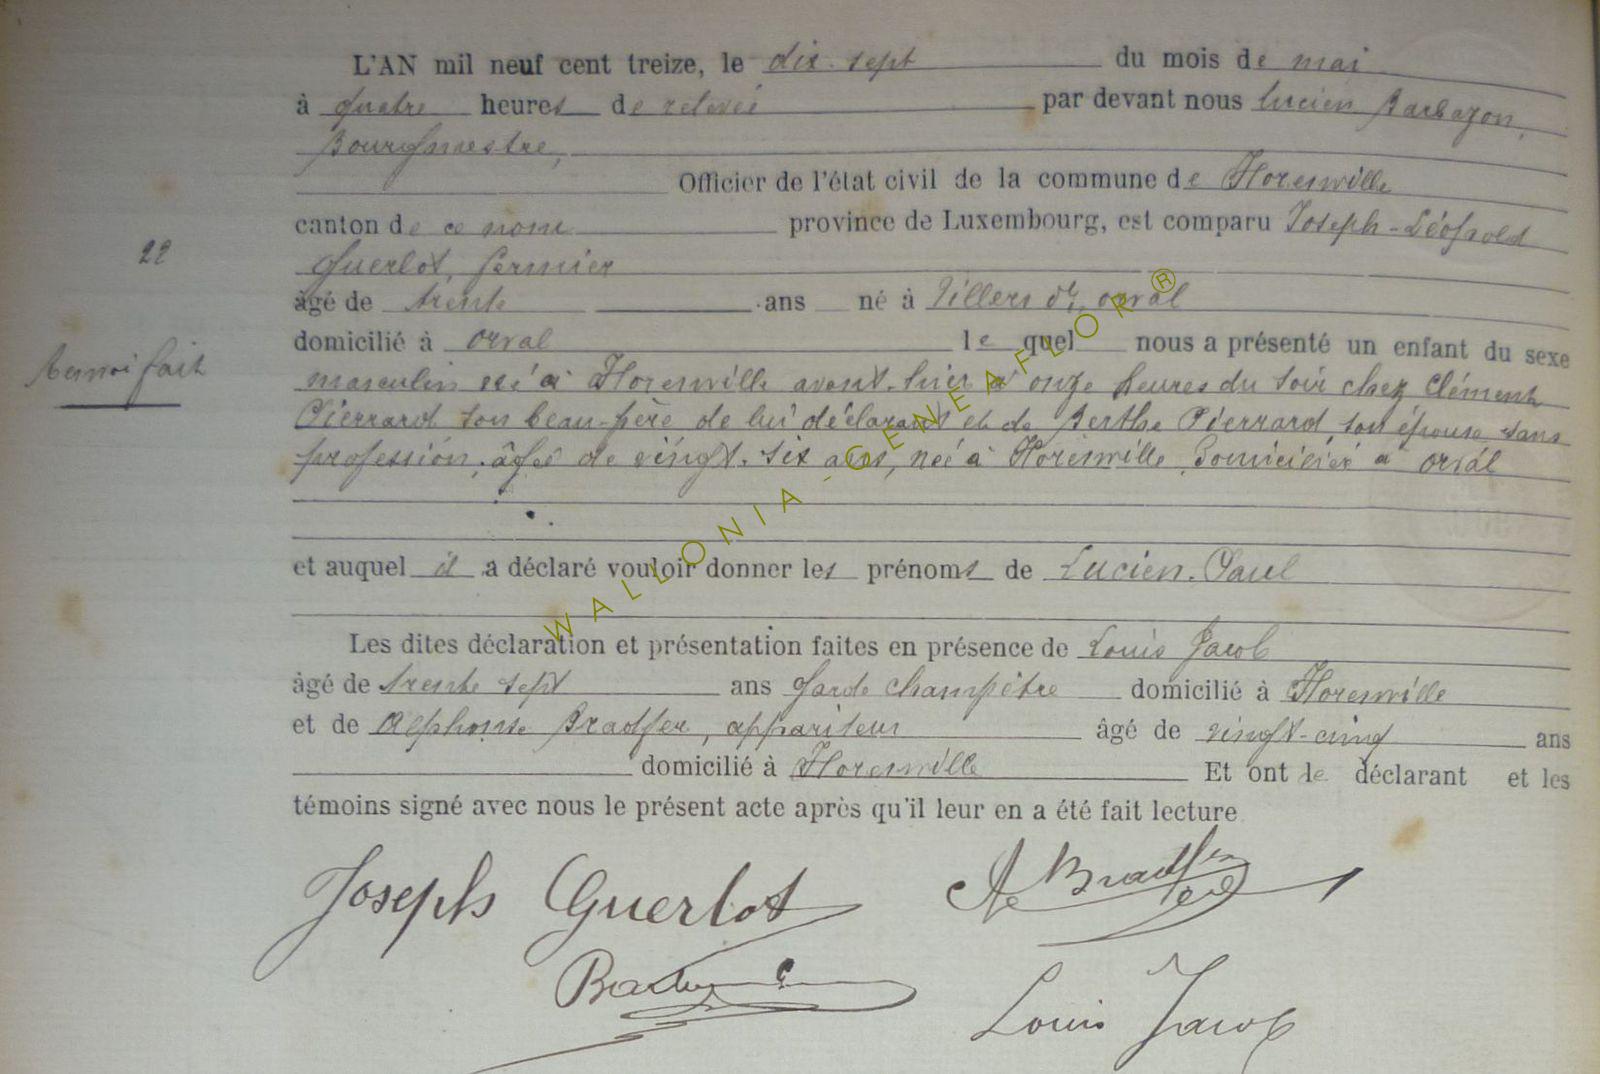 L'AN mil neuf cent treize, le dix-sept du mois de mai
à quatre heures de relevée par devant nous Lucien Barbazon,
Bourgmestre,
Officier de l'état civil de la commune de Florenville
canton de ce nom province de Luxembourg, est comparu Joseph-Léopold
22
Guerlot, fermier
âgé de trente ans né à Villers dt orval
domicilié à orval le quel nous a présenté un enfant du sexe
Renvoi fait
masculin né à Florenville avant-hier à onze heures du soir chez Clément
Pierrard son beau-père de lui déclarant et de Berthe Pierrard, son épouse, sans
profession, âgée de vingt-six ans, née à Florenville, domiciliée à orval
et auquel il a déclaré vouloir donner les prénoms de Lucien-Paul
Les dites déclaration et présentation faites en présence de Louis Jacob
âgé de trente sept ans garde champêtre domicilié à Florenville
et de Alphonse Bradfer, appariteur âgé de vingt-cinq ans
domicilié à Florenville Et ont le déclarant et les
témoins signé avec nous le présent acte après qu'il leur en a été fait lecture
Joseph Guerlot
Louis Jacob
WALLONIA-GENEAFLOR®